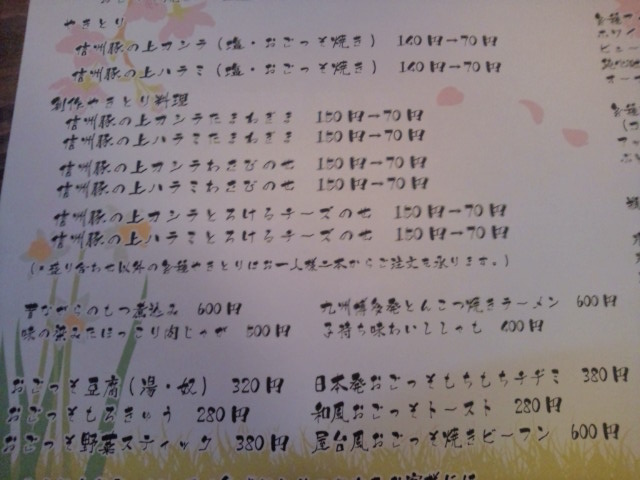 やきとり
信州豚の上カシラ（塩・おごっそ焼き） 160円→70円
信州豚の上ハラミ（塩・おごっそ焼き） 160円→70円
創作やきとり料理
信州豚の上カシラたまねぎま 150円→70円
信州豚の上ハラミたまねぎま 150円→70円
信州豚の上カシラわさびのせ 150円→70円
信州豚の上ハラミわさびのせ 150円→70円
信州豚の上カシラとろけるチーズのせ 150円→70円
信州豚の上ハラミとろけるチーズのせ 150円→70円
（・盛り合わせ以外の各種やきとりはお一人様二本からご注文を承ります。）
昔ながらのもつ煮込み 600円 九州博多発とんこつ焼きラーメン 600円
味の染みたほっこり肉じゃが 500円 子持ち味わいししゃも 400円
おごっそ豆腐（湯・奴） 320円 日本発おごっそもちもちチヂミ 380円
おごっそもろきゅう 280円 和風おごっそトースト 280円
おごっそ野菜スティック 380円 屋台風おごっそ焼きビーフン 600円